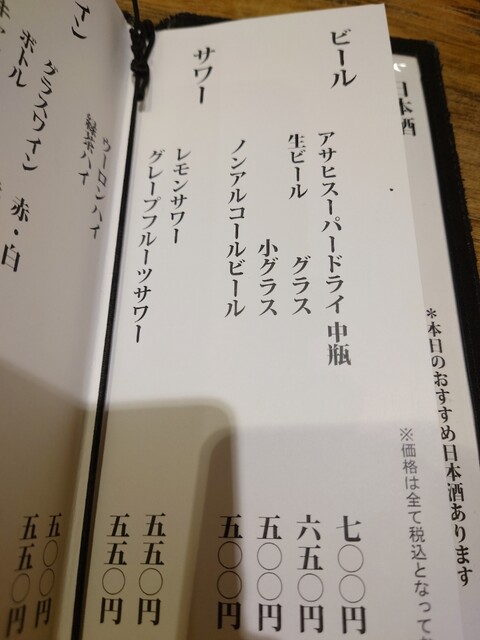 日本酒
*本日のおすすめ日本酒あります
※価格は全て税込となって
ビール
アサヒスーパードライ 中瓶 七〇〇円
生ビール グラス 六五〇円
小グラス 五〇〇円
ノンアルコールビール 五〇〇円
サワー
レモンサワー 五五〇円
グレープフルーツサワー 五五〇円
ウーロンハイ 五〇〇円
緑茶ハイ 五五〇円
イン
グラスワイン 赤・白
ボトル